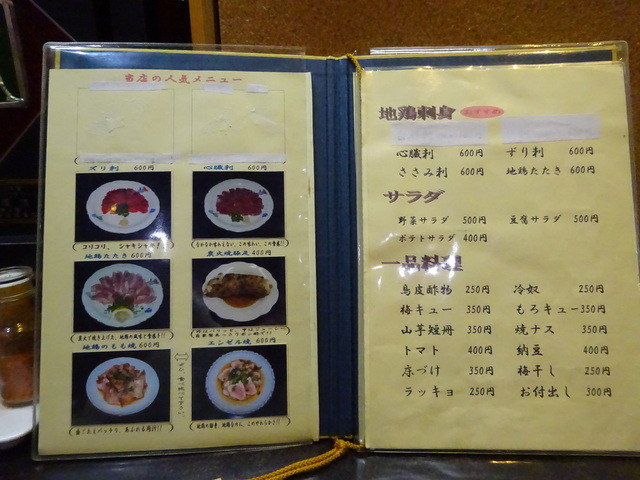 当店の人気メニュー
ズリ刺 600円
心臓刺 600円
コリコリ、シャキシャキ!
なかなか味わえない、この味わい、この食感!!
地鶏たたき 600円
炭火焼豚足 400円
地鶏のもも焼 600円
エンゼル焼 600円
地鶏刺身 おすすめ
心臓刺 600円 ずり刺 600円
ささみ刺 600円 地鶏たたき 600円
サラダ
野菜サラダ 500円 豆腐サラダ 500円
ポテトサラダ 400円
一品料理
鳥皮酢物 250円 冷奴 250円
梅キュー 350円 もろキュー 350円
山芋短冊 350円 焼ナス 350円
トマト 400円 納豆 400円
床づけ 350円 梅干し 250円
ラッキョ 250円 お付出し 300円